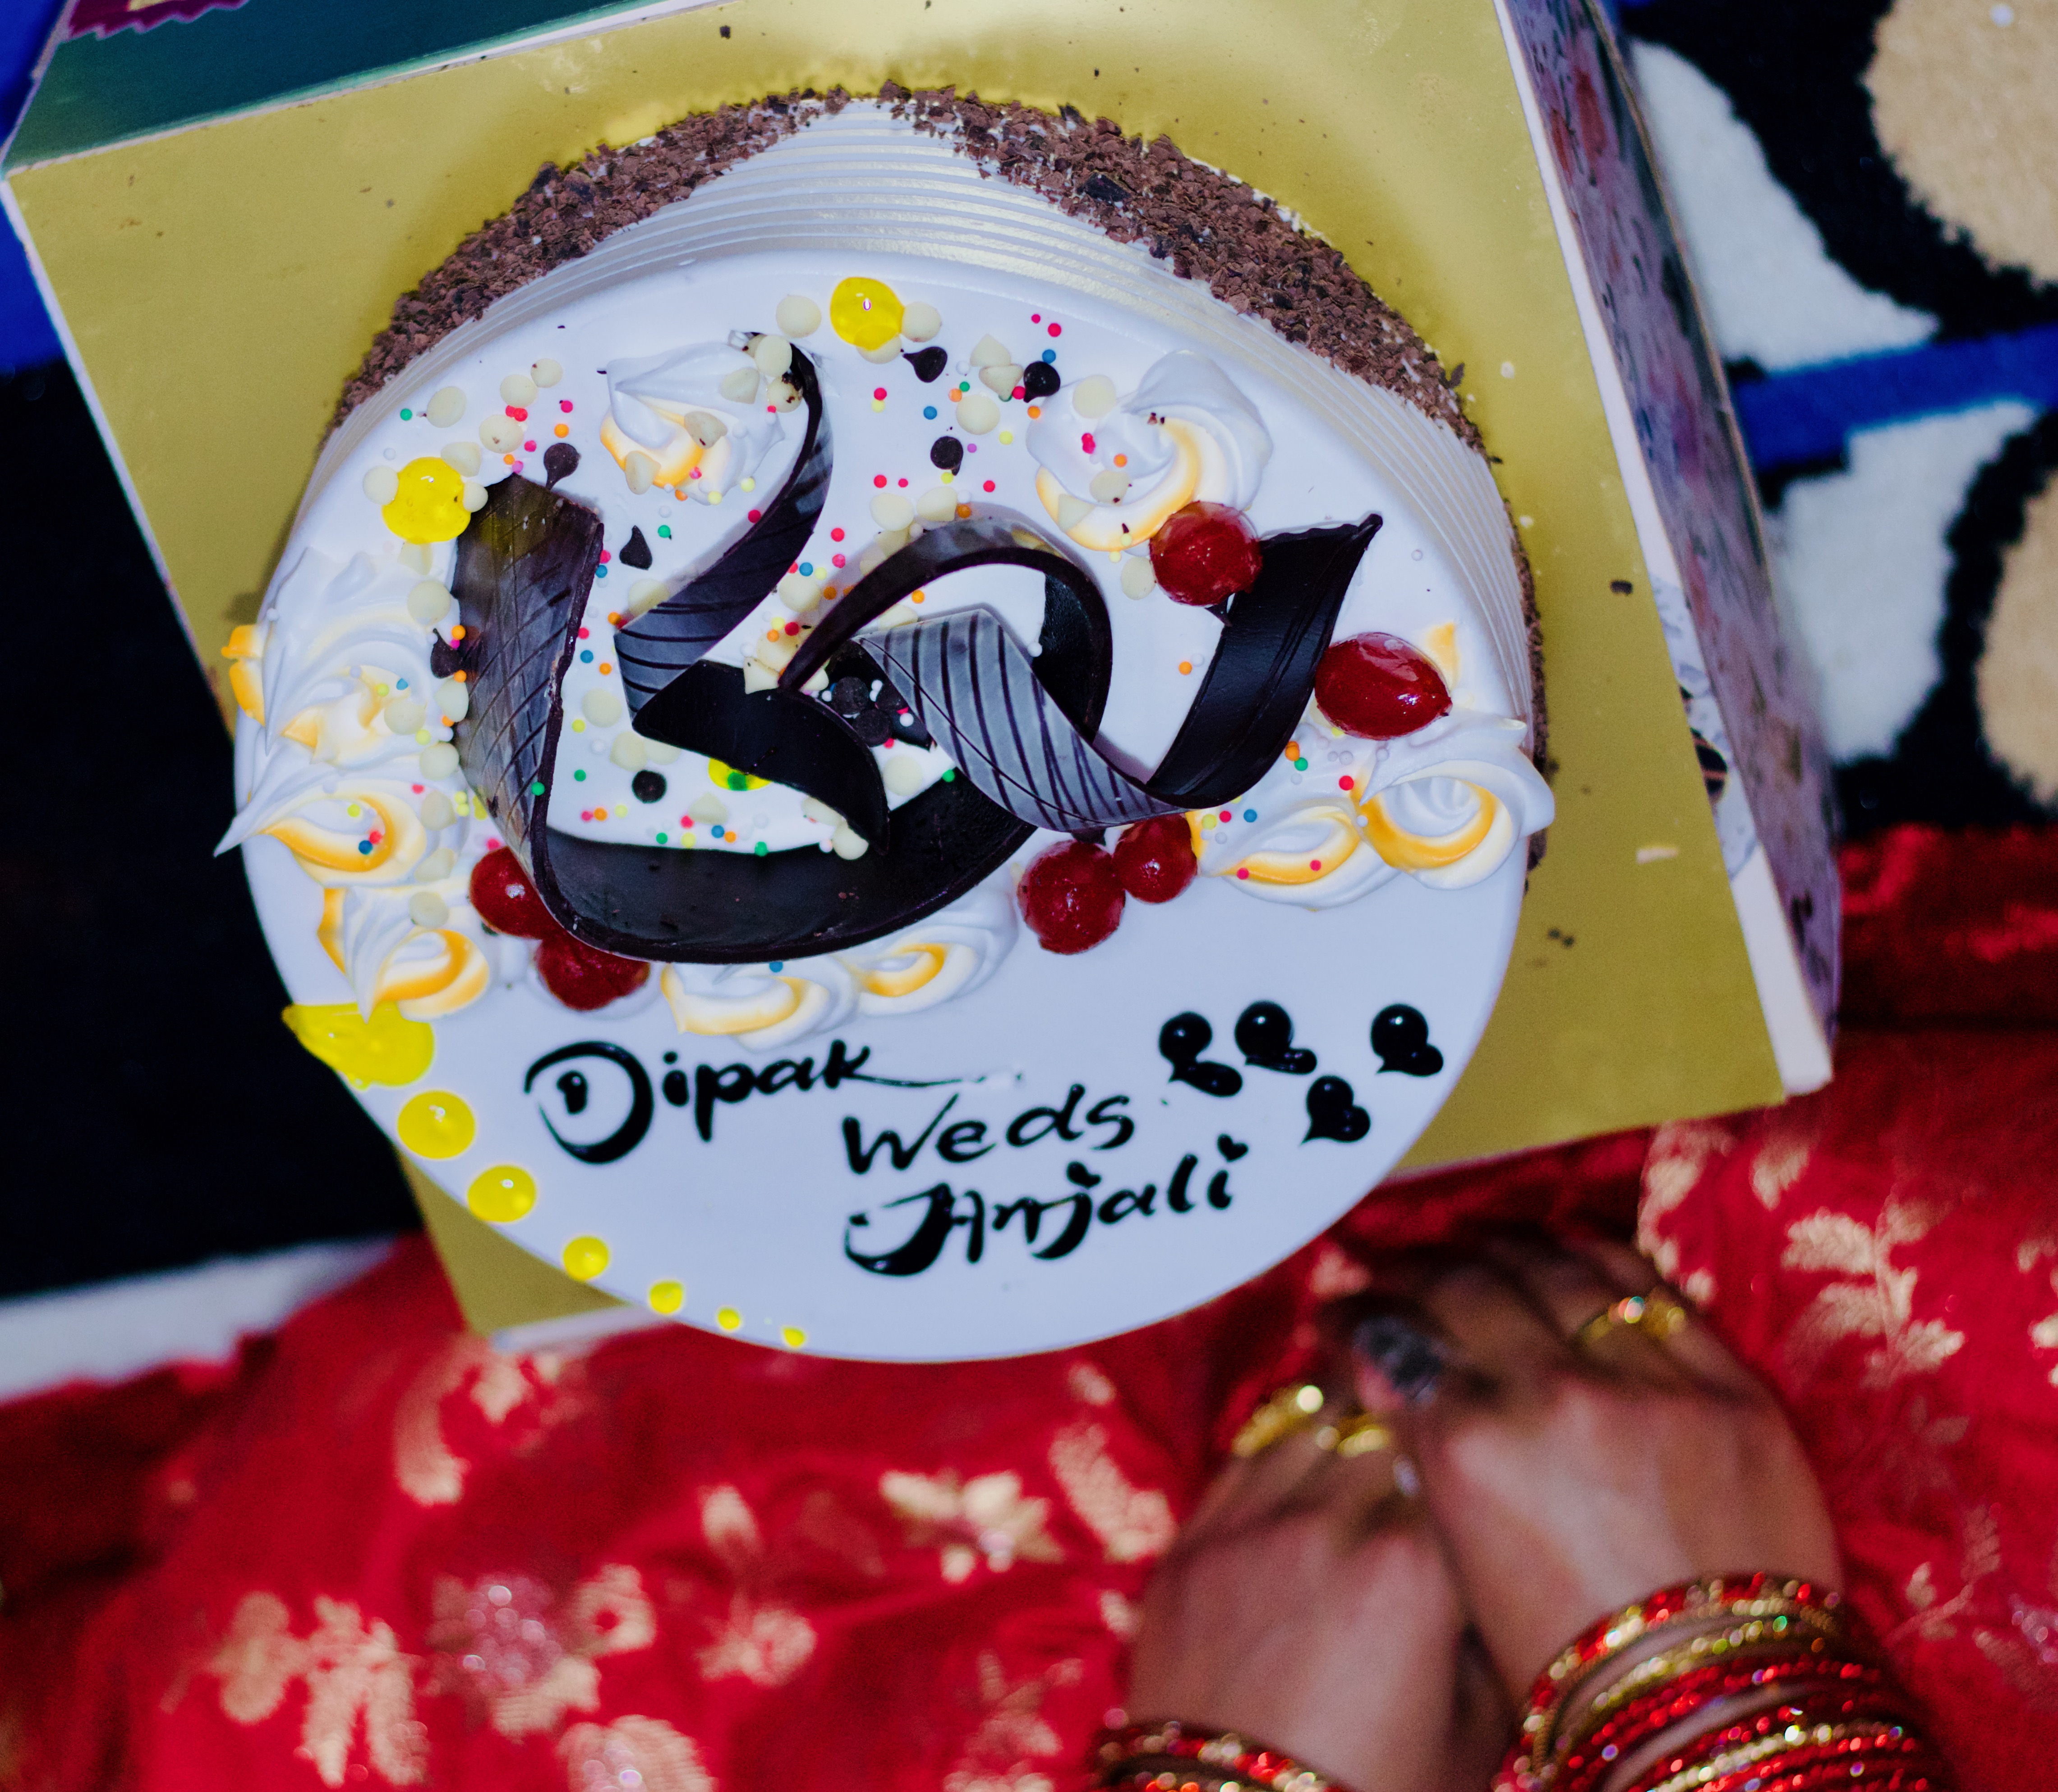 Dipak
Weds
Anjali